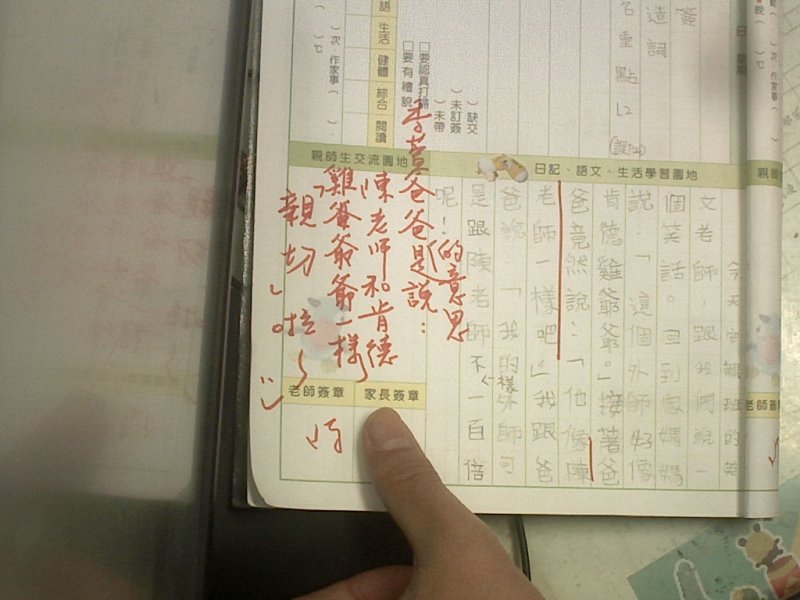 簽
造詞
名重點L2
語 生活 健體 綜合 閱讀
□要認真打掃
□要有禮貌
)缺交
)未訂簽
)未帶
)次 作家事(
日記、語文、生活學習園地
親師生交流園地
今天安親班的英
文老師,跟我們說一
個笑話。回到家媽媽
說:「這個外師好像
肯德雞爺爺。」接著爸
爸竟然說:「他像陳
老師一樣吧。」我跟爸
爸說「我的老師可
是跟陳老師不一樣一百倍
呢!
爸爸是說:
的意思
陳老師和肯德
雞爺爺一樣
親切」啦~
家長簽章
老師簽章
老師簽章